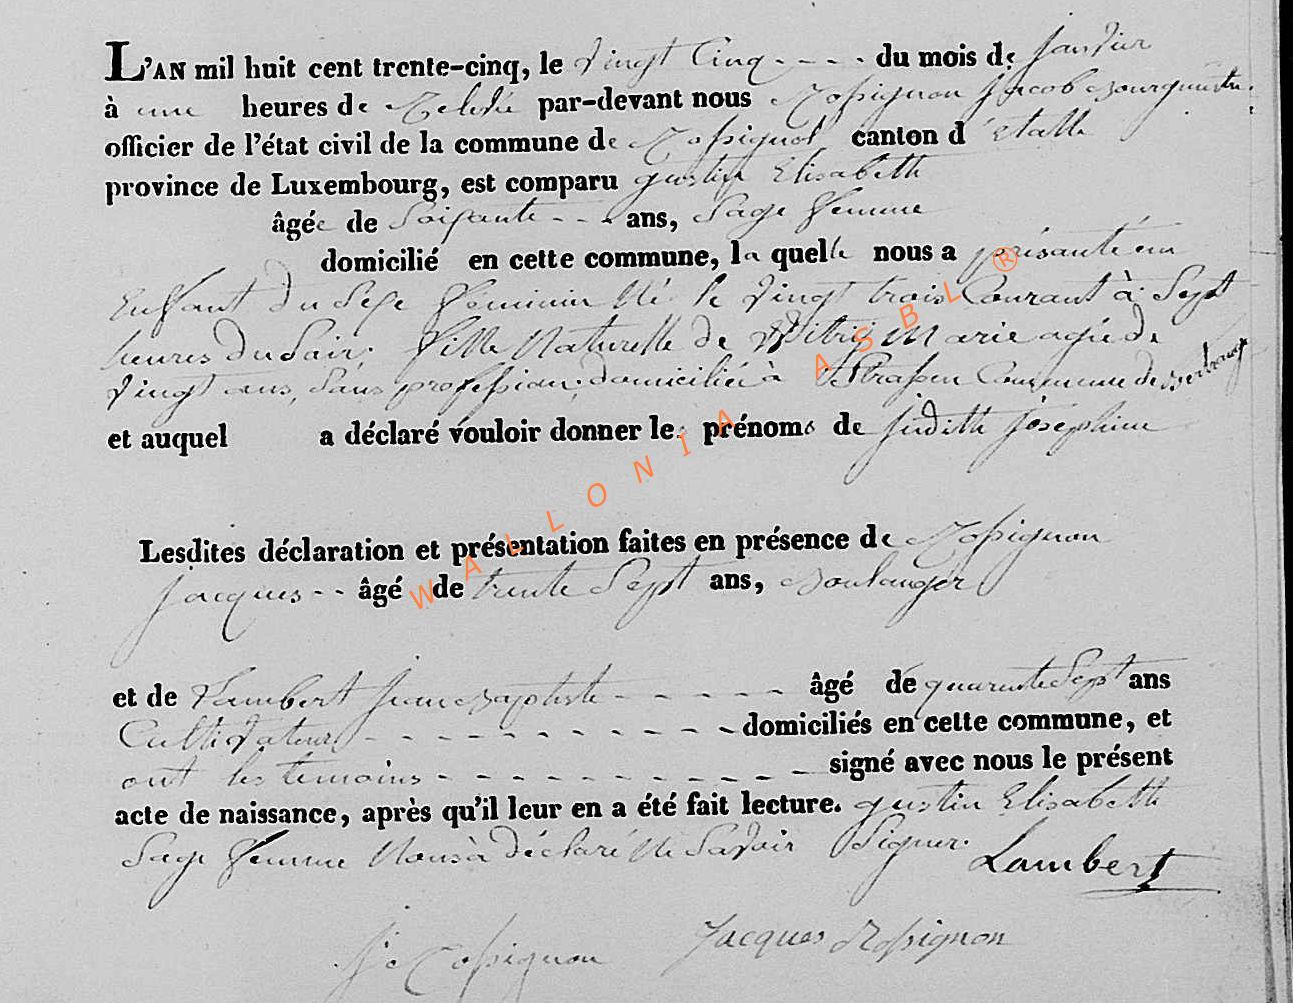 L'AN mil huit cent trente-cinq, le vingt Cinq - - - - du mois de janvier
à une heures de Relevée par-devant nous Rossignon Jacob Bourguestre
officier de l'état civil de la commune de Rossignol canton d'Etalle
province de Luxembourg, est comparu gustin Elisabeth
âgée de Soissante - - - ans, Sage femme
domicilié en cette commune, la quelle nous a présanté un
Enfant du Sexe feminin Né le vingt trois Courant à Sept
heures du Soir. fille Naturelle de Marie agée de
vingt ans, Sans profession, domiciliée à Commune de
et auquel a déclaré vouloir donner les prénoms de judith josephine
Lesdites déclaration et présentation faites en présence de Rossignon
Jacques - - âgé de trente Sept ans, Boulanger
et de Lambert jean Baptiste - - - - - - âgé de quarente Sept ans
Cultivateurs - - - - - - - - - - - domiciliés en cette commune, et
ont les temoins - - - - - - - - - - signé avec nous le présent
acte de naissance, après qu'il leur en a été fait lecture. gustin Elisabeth
Sage femme Nous à déclaré Ne Savoir Signer. Lambert
J. Rossignon Jacques Rossignon
WALLONIA ASBL ®